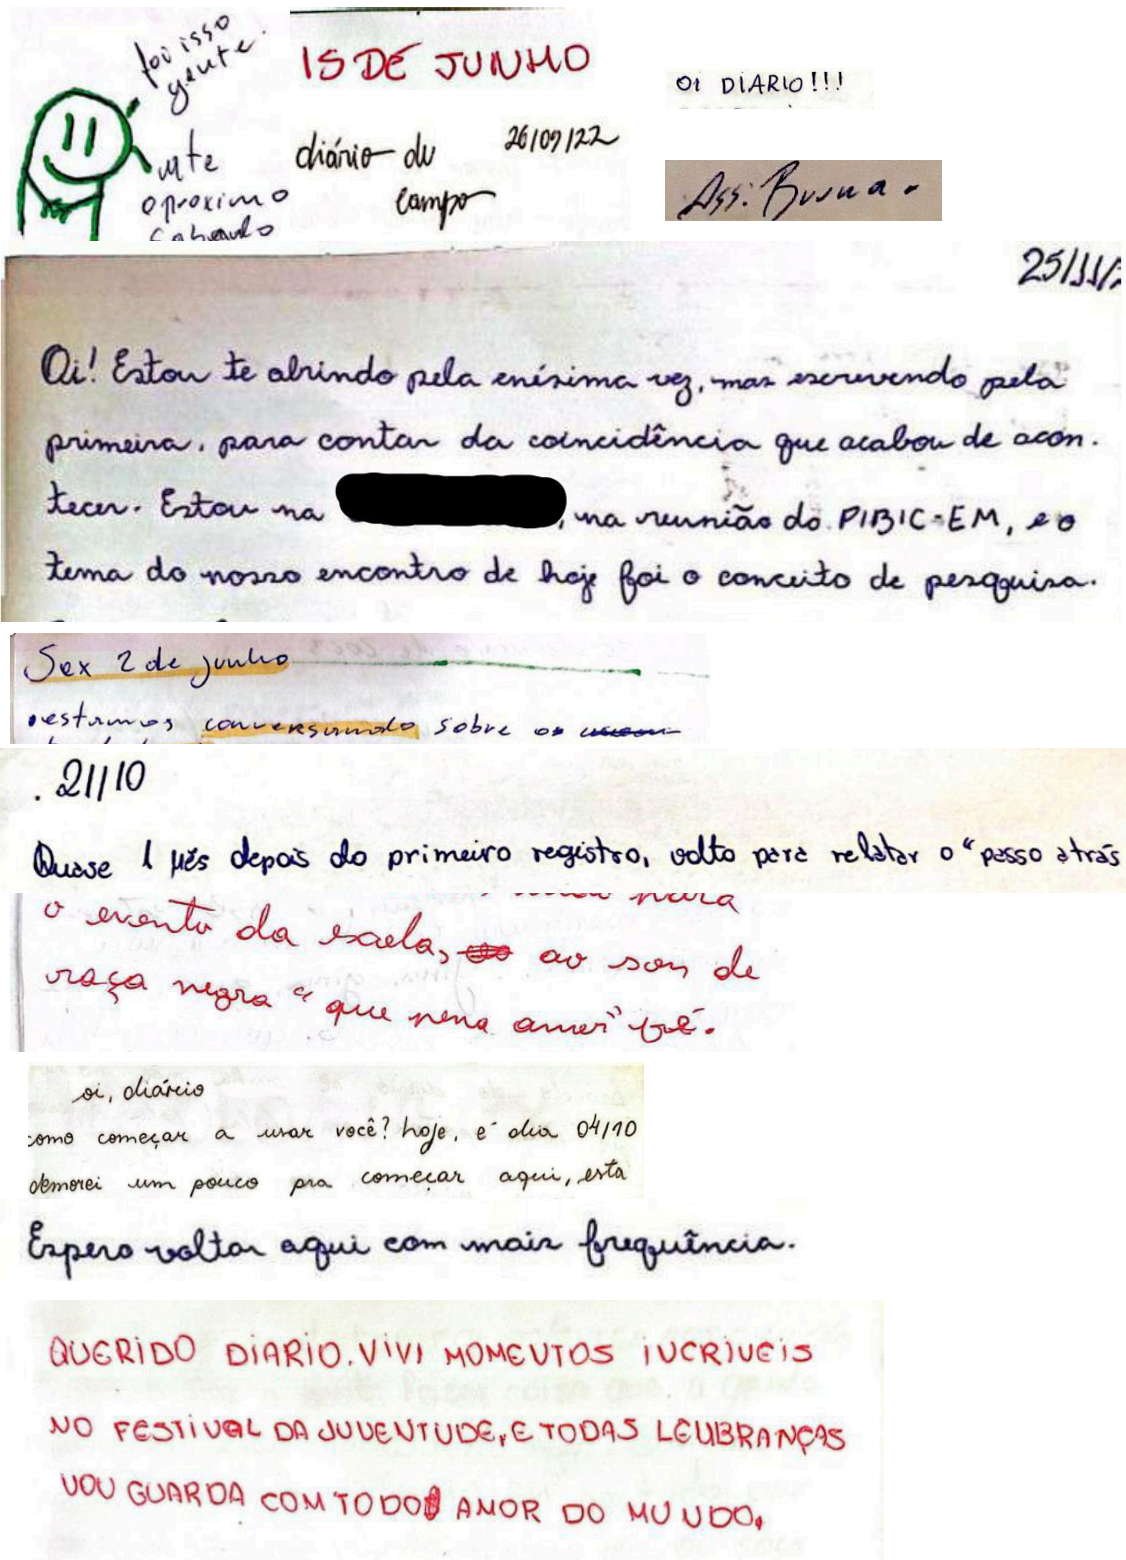 foi isso
gente.
ate
o proximo
sabado
15 DE JUNHO
diário de
campo
26/09/22
Oi DiARIO!!!
Ass: Bruna.
25/11/
Oi! Estou te abrindo pela enésima vez, mas escrevendo pela
primeira, para contar da coincidência que acabou de acon-
tecer. Estou na , na reunião do PIBIC-EM, e o
tema do nosso encontro de hoje foi o conceito de pesquisa.
Sex 2 de junho
estamos conversando sobre os
. 21/10
Quase 1 mês depois do primeiro registro, volto para relatar o "passo atrás
para
o evento da escola, ao som de
raça negra "que pena amor"
oi, diário
como começar a usar você? hoje, é dia 04/10
demorei um pouco pra começar aqui, esta
Espero voltar aqui com mais frequência.
QUERiDO DiARIO. ViVI MOMENTOS iNCRiVEiS
NO FESTiVAL DA JUVENTUDE, E TODAS LEMBRANÇAS
VOU GUARDA COM TODO AMOR DO MUNDO.